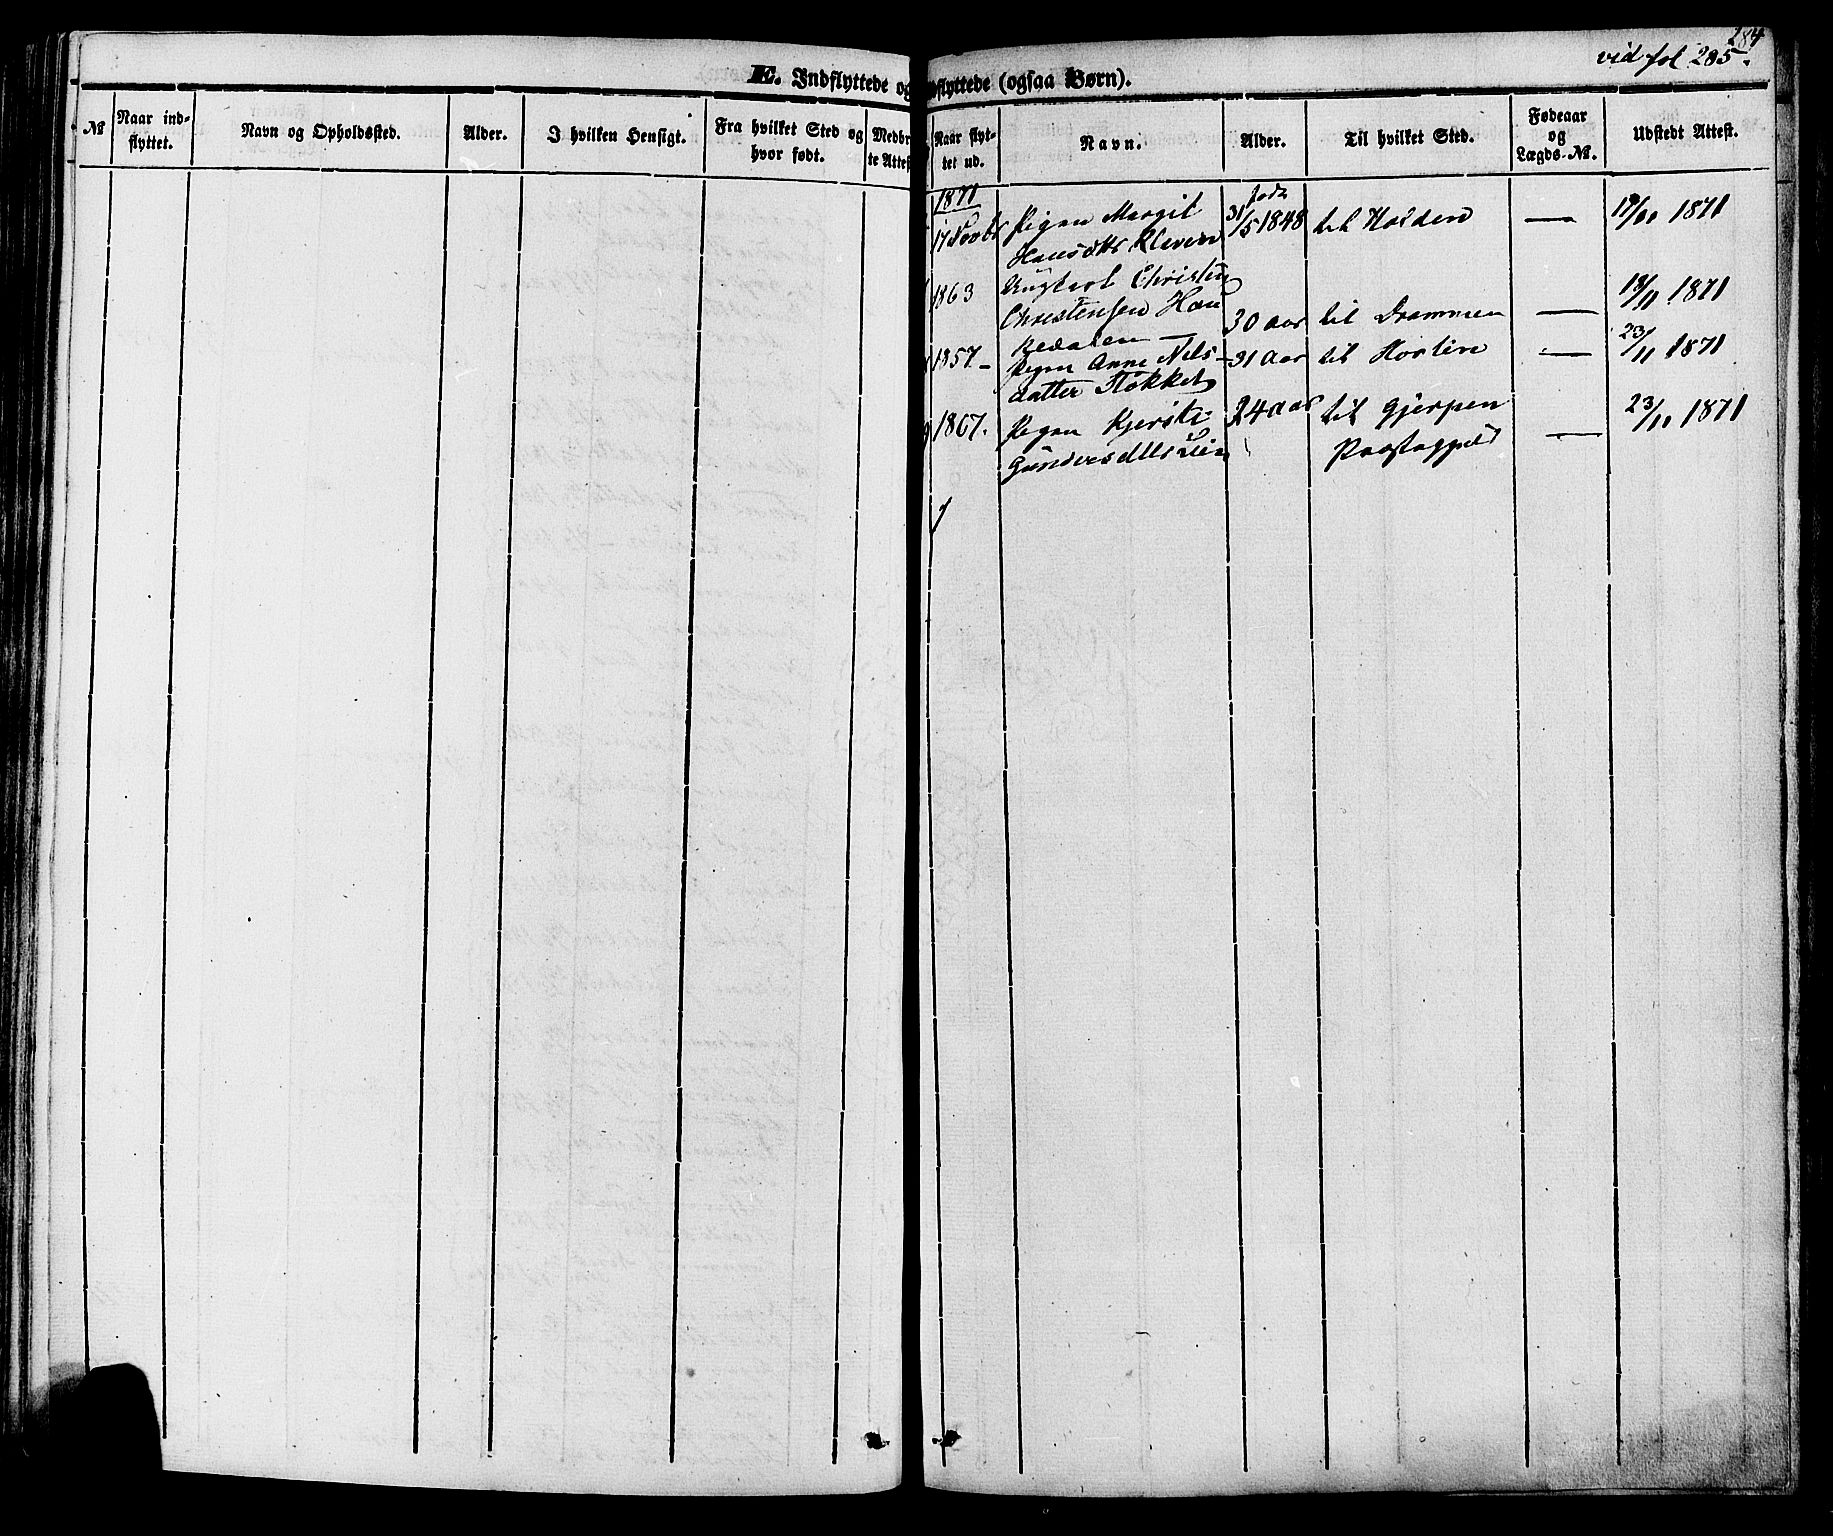 184
vid fol 205.
E. Indflyttede og
dflyttede (ogsaa Børn).
№
Naar ind-
flyttet.
Navn og Opholdssted.
Alder.
I hvilken Hensigt.
Fra hvilket Sted og
hvor født.
Medbr
te Attest
Naar flyt-
tet ud.
Navn.
Alder.
Til hvilket Sted.
Fødeaar
og
Lægds-№.
Udstedt Attest.
1871
17 Novbr
Pigen Margit
Hansdttr Kleven
født
31/5 1848
til Holden
—
1871
1863
Ungkarl Christen
Christensen Hau
kedalen —
30 aar
til Drammen
—
18/11 1871
1857 –
Pigen Anne Nils-
datter Stokket
31 aar
til Horten
—
23/11 1871
1867.
Pigen Kjersti
Gundersdttr Lien
24 aar
til Gjerpen
Præstegjeld
—
23/11 1871